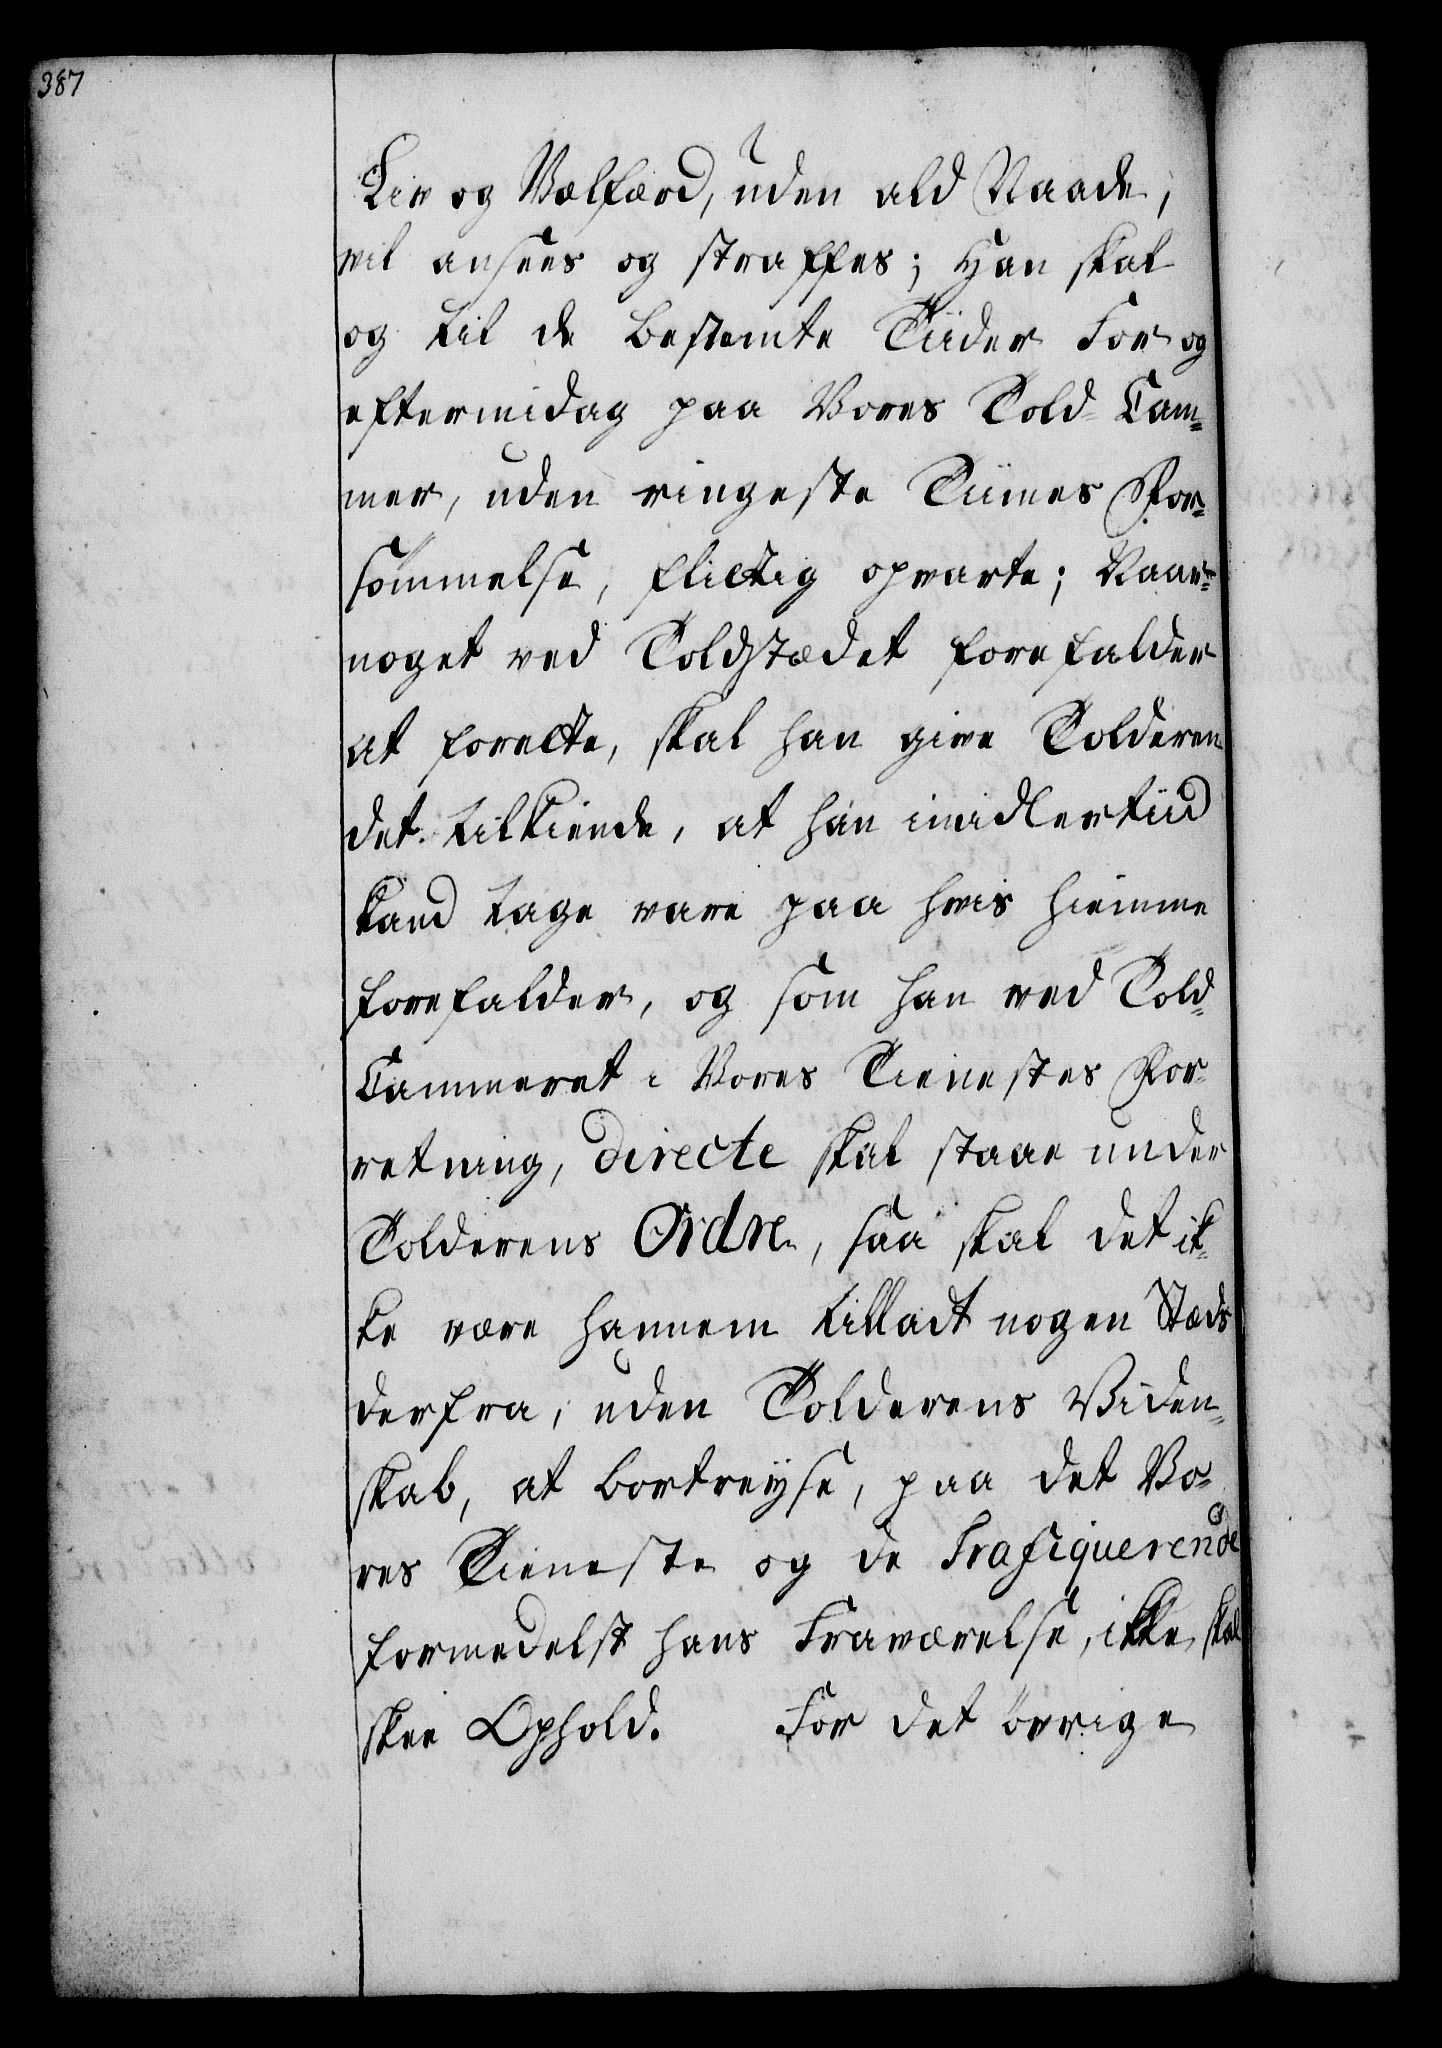 387
Liv og Velfærd, uden ald Naade,
vil ansees og straffes; Han skal
og til de bestemte Tiider For og
eftermidag paa Vores Told Cam=
mer, uden ringeste Tiimes For=
sømmelse, flictig opvarte; Naar
noget ved Toldstædet forefalder
at forrette, skal han give Tolderen
det tilkiende, at han imidlertiid
kand tage vare paa hvis hiemme
forefalder, og som han ved Told=
Cammeret i Vores Tienestes For
retning, directe skal staae under
Tolderens Ordre, saa skal det ik=
ke være hannem tilladt nogen Stæds
derfra, uden Tolderens Viden=
skab, at bortreyse, paa det Vo=
res Tieneste og de Trafiquerende
formedelst hans Fraværelse, ikke skal
skee Ophold. For det øvrige